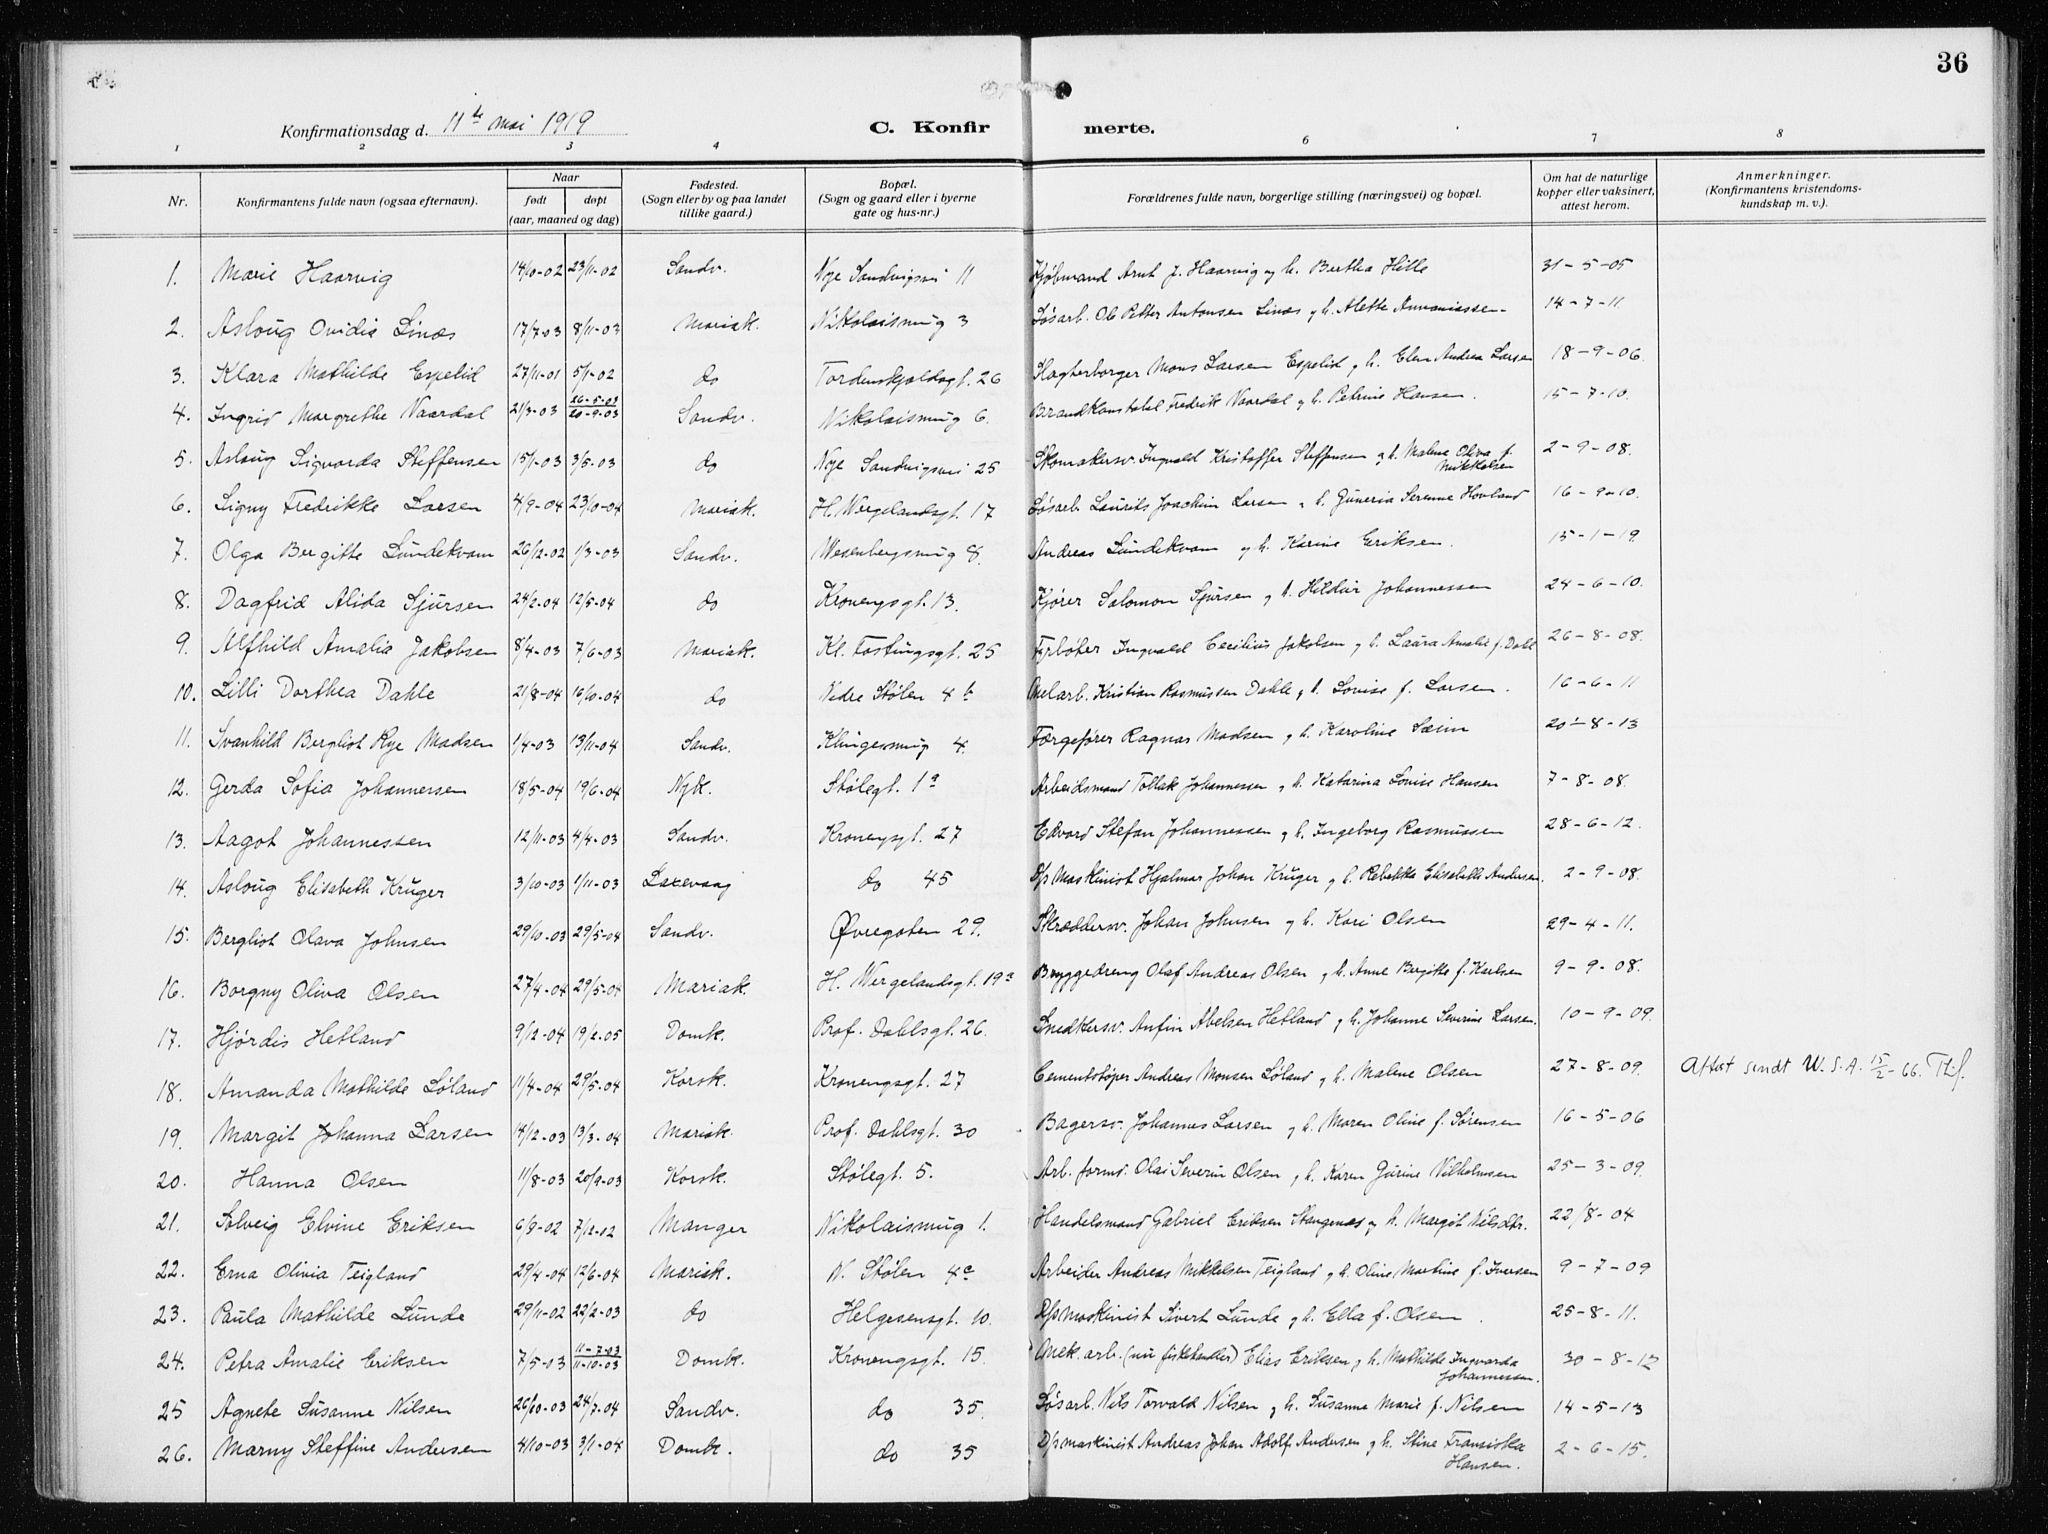 36
Konfirmationsdag d. 11te mai 1919
C. Konfirmerte.
1 2 3 4 6 7 8
Nr. Konfirmantens fulde navn (ogsaa efternavn). Naar født døpt (aar, maaned og dag) Fødested. (Sogn eller by og paa landet tillike gaard.) Bopæl. (Sogn og gaard eller i byerne gate og hus-nr.) Forældrenes fulde navn, borgerlige stilling (næringsvei) og bopæl. Om hat de naturlige kopper eller vaksinert, attest herom. Anmerkninger. (Konfirmantens kristendoms-kundskap m. v.).
1. Marie Haarvig 14/10-02 23/11-02 Sandv. Nye Sandvigsvei 11 Kjøbmand Arnt J. Haarvig og h. Bertha Hille 31-5-05
2. Asloug Ovidia Linæs 17/7-03 8/11-03 Mariak. Nikolaismug 3 Løsarb. Ole Petter Antonsen Linæs og h. Alette Ananiassen 14-7-11
3. Klara Mathilde Espelid 27/11-01 5/1-02 do Tordenskjoldsgt. 26 Slagterborger Mons Larsen Espelid og h. Elen Andrea Larsen 18-9-06.
4. Ingrid Margrethe Naardal 21/3-03 26-5-03 20-9-03 Sandv. Nikolaismug 6. Brandkonstabel Fredrik Naardal og h. Petrine Hansen. 15-7-10.
5. Asloug Sigvarda Steffensen 15/1-03 3/5-03 do Nye Sandvigsvei 25 Skomakersv. Ingvald Kristoffer Steffensen og h. Malene Oliva f. Mikkelsen 2-9-08.
6. Signy Fredrikke Larsen 4/9-04 23/10-04 Mariak. H. Wergelandsgt. 17 Løsarb. Laurits Joachim Larsen og h. Guneria Serenne Hovland 16-9-10.
7. Olga Bergitte Lundekvam 26/12-02 1/3-03 Sandv. Wesenbergsmug 8. Andreas Lundekvam og h. Karine Eriksen. 15-1-19.
8. Dagfrid Alida Sjursen 24/2-04 12/5-04 do Kronengsgt. 13. Kjører Salomon Sjursen og h. Hildur Johannessen 24-6-10.
9. Alfhild Amalia Jakobsen 8/4-03 7/6-03 Mariak. Kl. Fostingsgt. 25 Fyrbøter Ingvald Cecilius Jakobsen og h. Laura Amalie f. Dahl 26-8-08.
10. Lilli Dorthea Dahle 21/8-04 16/10-04 do Nedre Stølen 4b Mekarb. Kristian Rasmussen Dahle og h. Lovise f. Larsen. 16-6-11
11. Svanhild Bergliot Rye Madsen 1/4-03 13/11-04 Sandv. Klingesmug 4. Færgefører Ragnas Madsen og h. Karoline Sæim 20-8-13
12. Gerda Sofia Johannessen 18/5-04 19/6-04 Nyk. Stølegt. 1a Arbeidsmand Tollak Johannessen og h. Katarina Lovise Hansen 7-8-08.
13. Aagot Johannessen 12/11-03 4/4-03 Sandv. Kronengsgt. 27 Edvard Stefan Johannessen og h. Ingeborg Rasmussen 28-6-12.
14. Asloug Elisabeth Kruger 3/10-03 1/11-03 Laxevaag do 45 D/s Maskinist Hjalmar Johan Kruger og h. Rebekka Elisabeth Andersen. 2-9-08.
15. Bergliot Olava Johnsen 29/10-03 29/5-04 Sandv. Øvregaten 29. Skræddersv. Johan Johnsen og h. Kari Olsen 29-4-11.
16. Borgny Oliva Olsen 27/4-04 29/5-04 Mariak. H. Wergelandsgt. 19a Bryggedreng Olaf Andreas Olsen og h. Anne Bergitte f. Karlsen 9-9-08.
17. Hjørdis Hetland 9/12-04 19/2-05 Domk. Prof. Dahlsgt. 26. Snedkersv. Anfin Abelsen Hetland og h. Johanne Severine Larsen. 10-9-09.
18. Amanda Mathilde Løland 11/4-04 29/5-04 Korsk. Kronengsgt. 27 Cementstøper Andreas Monsen Løland og h. Malene Olsen 27-8-09. Attest sendt U.S.A. 15/2-66.
19. Margit Johanna Larsen 14/12-03 13/3-04 Mariak. Prof. Dahlsgt. 30 Bagersv. Johannes Larsen og h. Maren Oline f. Sørensen 16-5-06
20. Hanna Olsen 11/8-03 20/9-03 Korsk. Stølegt. 5. Arb. formd. Olai Severin Olsen og h. Karen Gurine Vilhelmsen 25-3-09.
21. Solveig Elvine Eriksen 6/9-02 7/12-02 Manger Nikolaismug 1. Handelsmand Gabriel Eriksen Stangenæs og h. Margit Nilsdtr. 22/8-04
22. Erna Olivia Teigland 29/4-04 12/6-04 Mariak. N. Stølen 4c Arbeider Andreas Mikkelsen Teigland og h. Oline Martine f. Iversen 9-7-09
23. Paula Mathilde Lunde 29/11-02 22/2-03 do Helgesensgt. 10. D/s maskinist Sivert Lunde og h. Ella f. Olsen. 25-8-11.
24. Petra Amalie Eriksen 7/5-03 11-7-03 11-10-03 Domk. Kronengsgt. 15. Mek. arb. (nu fiskehandler) Elias Eriksen og h. Mathilde Ingvarda Johannessen. 30-8-12
25 Agnete Susanne Nilsen 26/10-03 24/7-04 Sandv. do 35. Løsarb. Nils Torvald Nilsen og h. Susanne Marie f. Nilsen 14-5-13
26. Marny Steffine Andersen 4/10-03 3/1-04 Domk. do 35 D/s maskinist Andreas Johan Adolf Andersen og h. Stine Fransiska Hansen. 2-6-15.